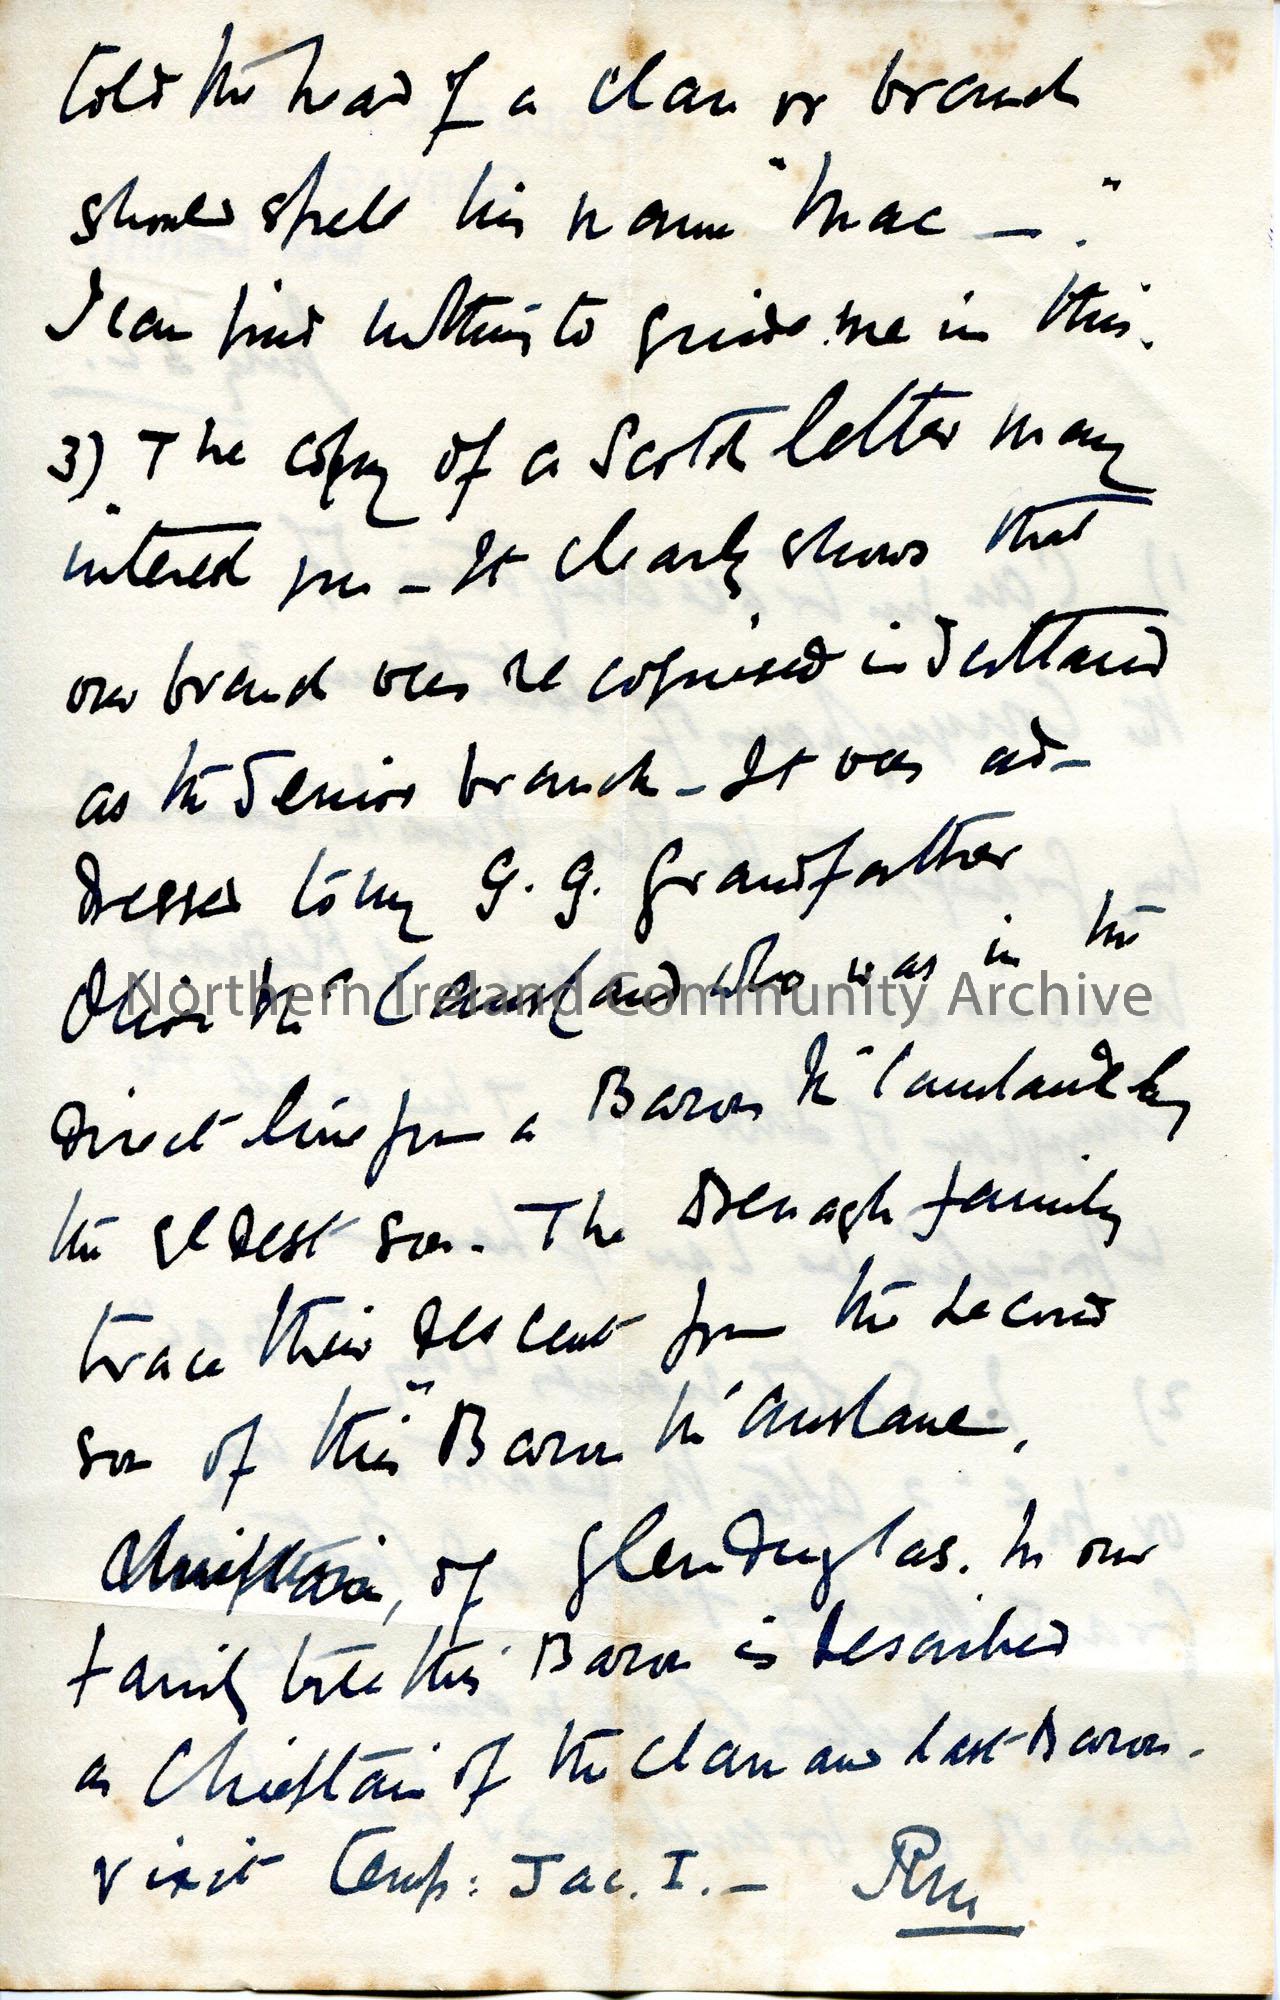 told the head of a clan or branch
should spell his name "Mac — ."
I can find nothing to guide me in this.
3) The copy of a Scotch letter may
interest you – It clearly shows that
our branch was recognised in Scotland
as the Senior branch – It was ad-
dressed to my G. G. Grandfather
Oliver Mc Causland who was in the
Northern Ireland Community Archive
direct line from a Baron McCausland by
the eldest son. The Drenagh family
trace their descent from the second
son of this "Baron McAuslane,
Chieftain, of Glenduglas. In our
family tree this Baron is described
as Chieftain of the clan and last Baron –
vixit temp: Jac. I. –